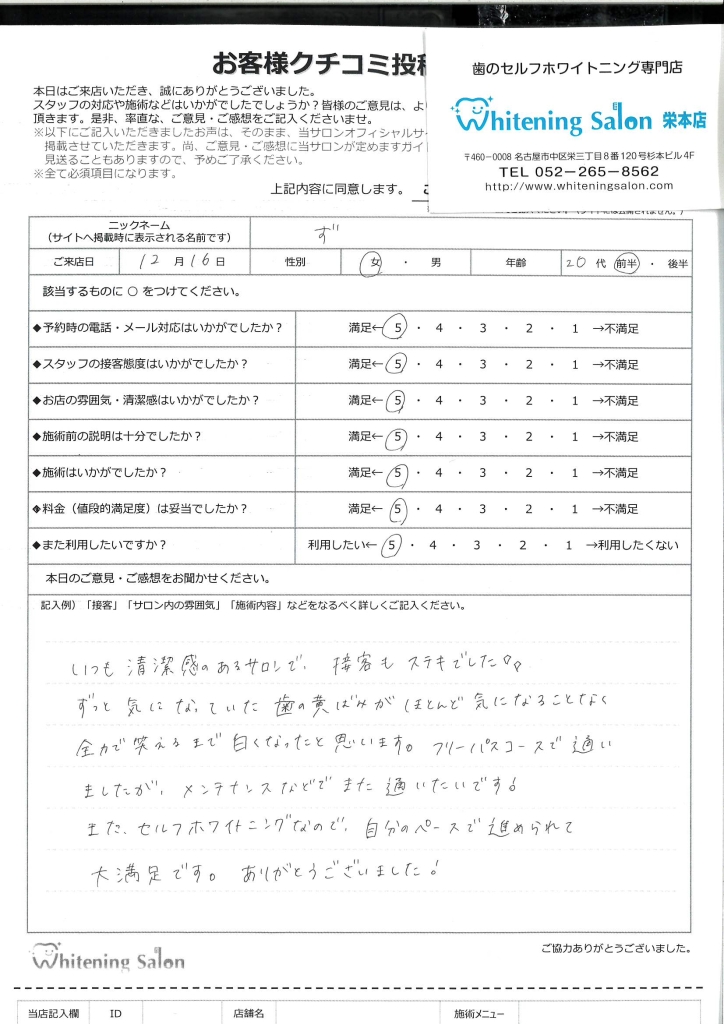 お客様クチコミ投稿
本日はご来店いただき、誠にありがとうございました。
スタッフの対応や施術などはいかがでしたでしょうか？皆様のご意見は、より
頂きます。是非、率直な、ご意見・ご感想をご記入くださいませ。
※以下にご記入いただきましたお声は、そのまま、当サロンオフィシャルサ
掲載させていただきます。尚、ご意見・ご感想に当サロンが定めますガイド
見送ることもありますので、予めご了承ください。
※全て必須項目になります。
上記内容に同意します。
歯のセルフホワイトニング専門店
Whitening Salon 栄本店
〒460-0008 名古屋市中区栄三丁目8番120号杉本ビル4F
TEL 052-265-8562
http://www.whiteningsalon.com
ニックネーム
（サイトへ掲載時に表示される名前です）
ず
ご来店日 12 月 16 日 性別 女 ・ 男 年齢 20 代 前半 ・ 後半
該当するものに ○ をつけてください。
◆予約時の電話・メール対応はいかがでしたか？ 満足← 5 ・ 4 ・ 3 ・ 2 ・ 1 →不満足
◆スタッフの接客態度はいかがでしたか？ 満足← 5 ・ 4 ・ 3 ・ 2 ・ 1 →不満足
◆お店の雰囲気・清潔感はいかがでしたか？ 満足← 5 ・ 4 ・ 3 ・ 2 ・ 1 →不満足
◆施術前の説明は十分でしたか？ 満足← 5 ・ 4 ・ 3 ・ 2 ・ 1 →不満足
◆施術はいかがでしたか？ 満足← 5 ・ 4 ・ 3 ・ 2 ・ 1 →不満足
◆料金（値段的満足度）は妥当でしたか？ 満足← 5 ・ 4 ・ 3 ・ 2 ・ 1 →不満足
◆また利用したいですか？ 利用したい← 5 ・ 4 ・ 3 ・ 2 ・ 1 →利用したくない
本日のご意見・ご感想をお聞かせください。
記入例）「接客」「サロン内の雰囲気」「施術内容」などをなるべく詳しくご記入ください。
いつも 清潔感のあるサロンで、接客も ステキでした♡♡
ずっと 気に なっていた 歯の黄ばみが ほとんど 気になることなく
全力で笑えるまで 白くなったと思います。フリーパスコースで通い
ましたが、メンテナンスなどで また 通いたいです!
また、セルフホワイトニングなので、自分のペースで進められて
大満足です。ありがとうございました!
Whitening Salon
ご協力ありがとうございました。
当店記入欄 ID 店舗名 施術メニュー